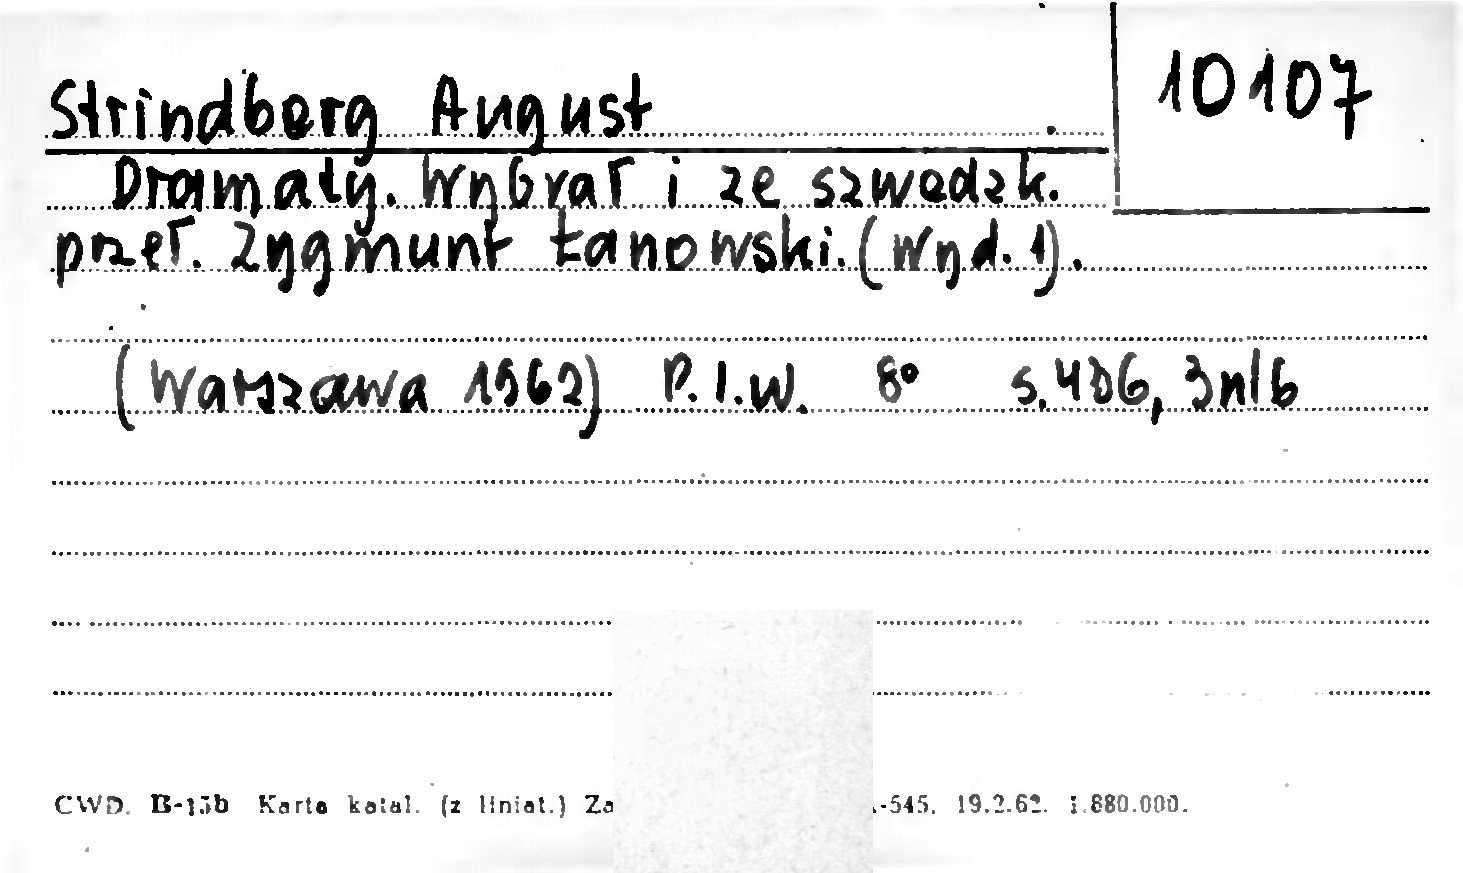 Strindberg August
10107
Dramaty. Wybrał i ze szwedzk.
przeł. Zygmunt Łanowski. (Wyd. 1).
(Warszawa 1962) P.I.W. 8° s. 486, 3nlb
CWD. B-15b Karta katal. (z liniat.) Za -545. 19.2.62. 1.880.000.